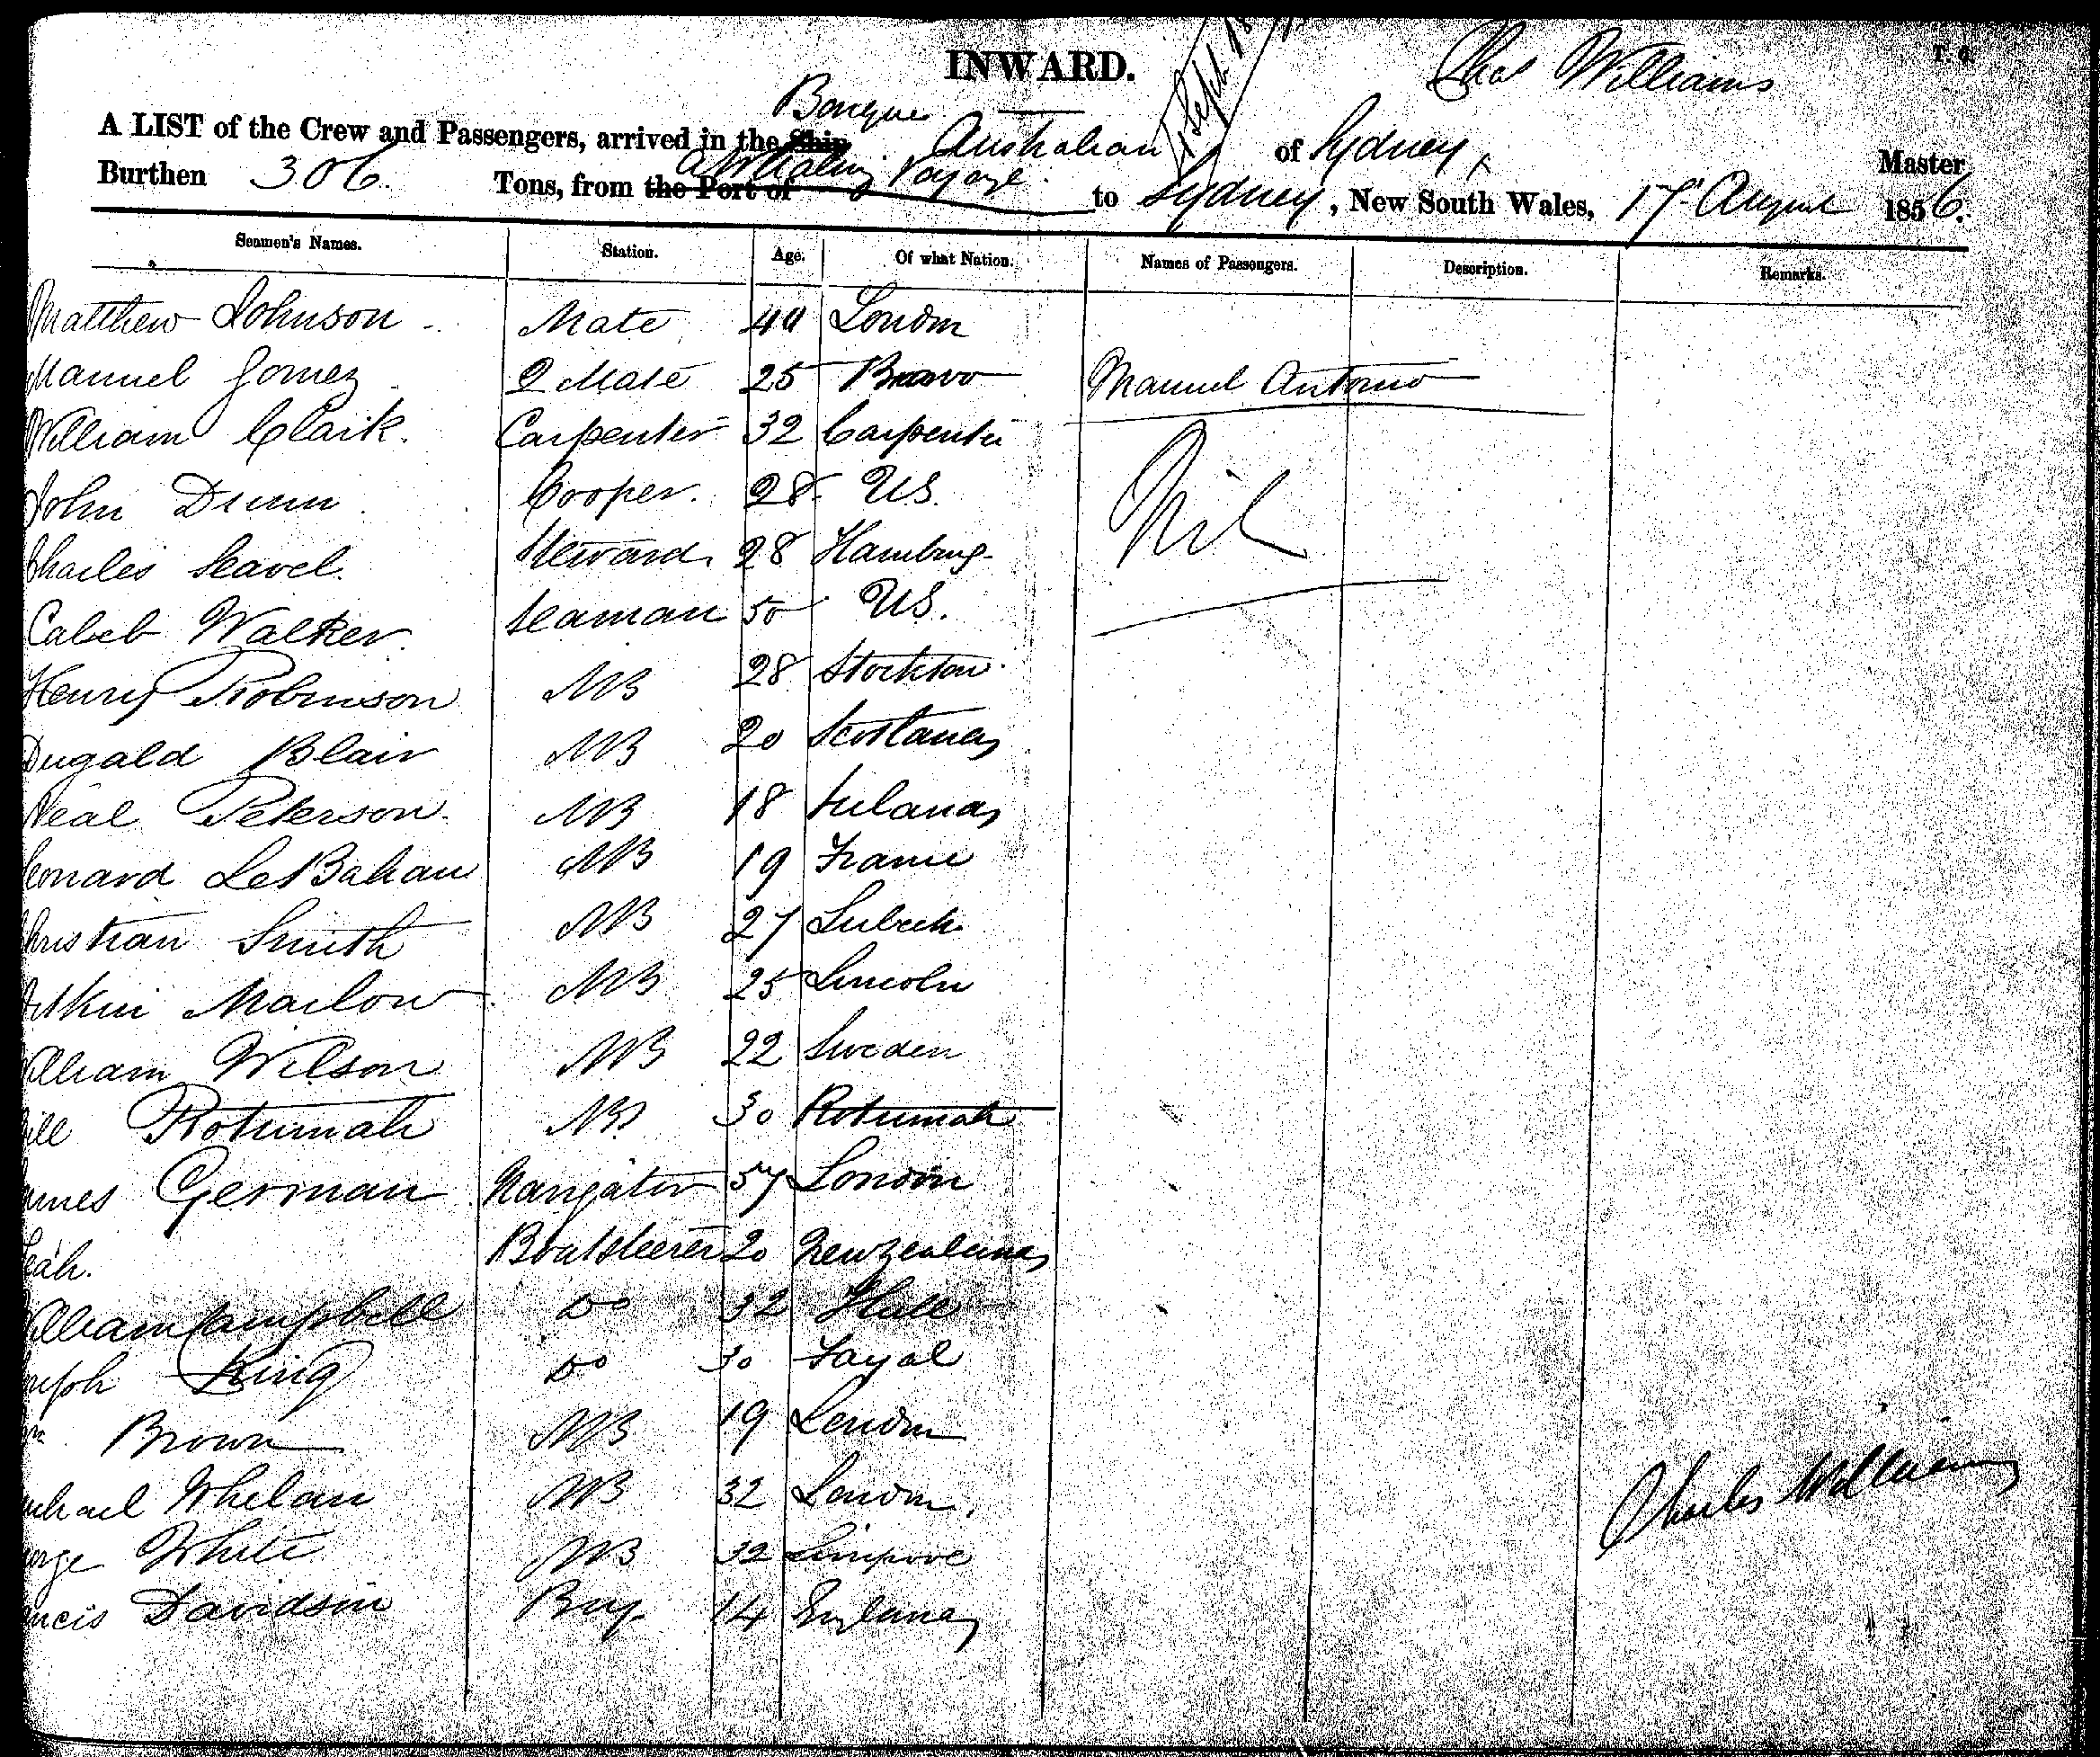 INWARD.
T. 6.
4 Sept 18
Chas Williams
Barque
A LIST of the Crew and Passengers, arrived in the Ship Australian of Sydney, Master
a Whaling Voyage
Burthen 306. Tons, from the Port of to Sydney, New South Wales, 17 August 1856.
Seamen's Names. Station. Age. Of what Nation. Names of Passengers. Description. Remarks.
Matthew Johnson Mate 40 London
Manuel Gomez 2 Mate 25 Bravo Manuel Antonio
William Clark. Carpenter 32 Carpenter
John Dunn Cooper. 28 US.
Nil
Charles Seavel. Steward 28 Hamburg
Caleb Walker Seaman 50 US.
Henry Robinson AB 28 Stockton
Dugald Blair AB 20 Scotland
Neal Peterson AB 18
Leonard AB 19 France
Christian Smith AB 27 Lubeck
Marlow AB 25 Lincoln
William Wilson AB 22 Sweden
Bill Rotumah AB 30 Rotumah
James German Navigator 57 London
Boatsteerer 20 New Zealand
William Campbell Do 32 Hull
Joseph King Do 30 Fayal
Wm Brown AB 19 London
Michael Whelan AB 32 London
George White AB 32
Francis Davidson Boy 14 England
Charles Williams